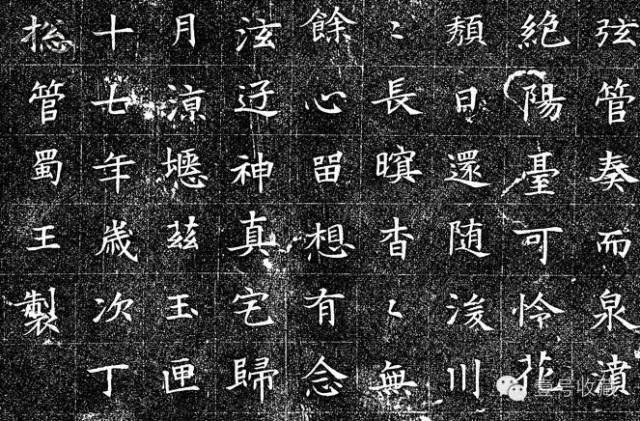 弦管奏而泉濆
絕陽臺可怜花
頹日還随浚川
〻長暝杳〻無
餘心留想有念
泫遊神真宅歸
月凉瘞茲玉匣
十七年歲次丁
揔管蜀王製
壹号收藏